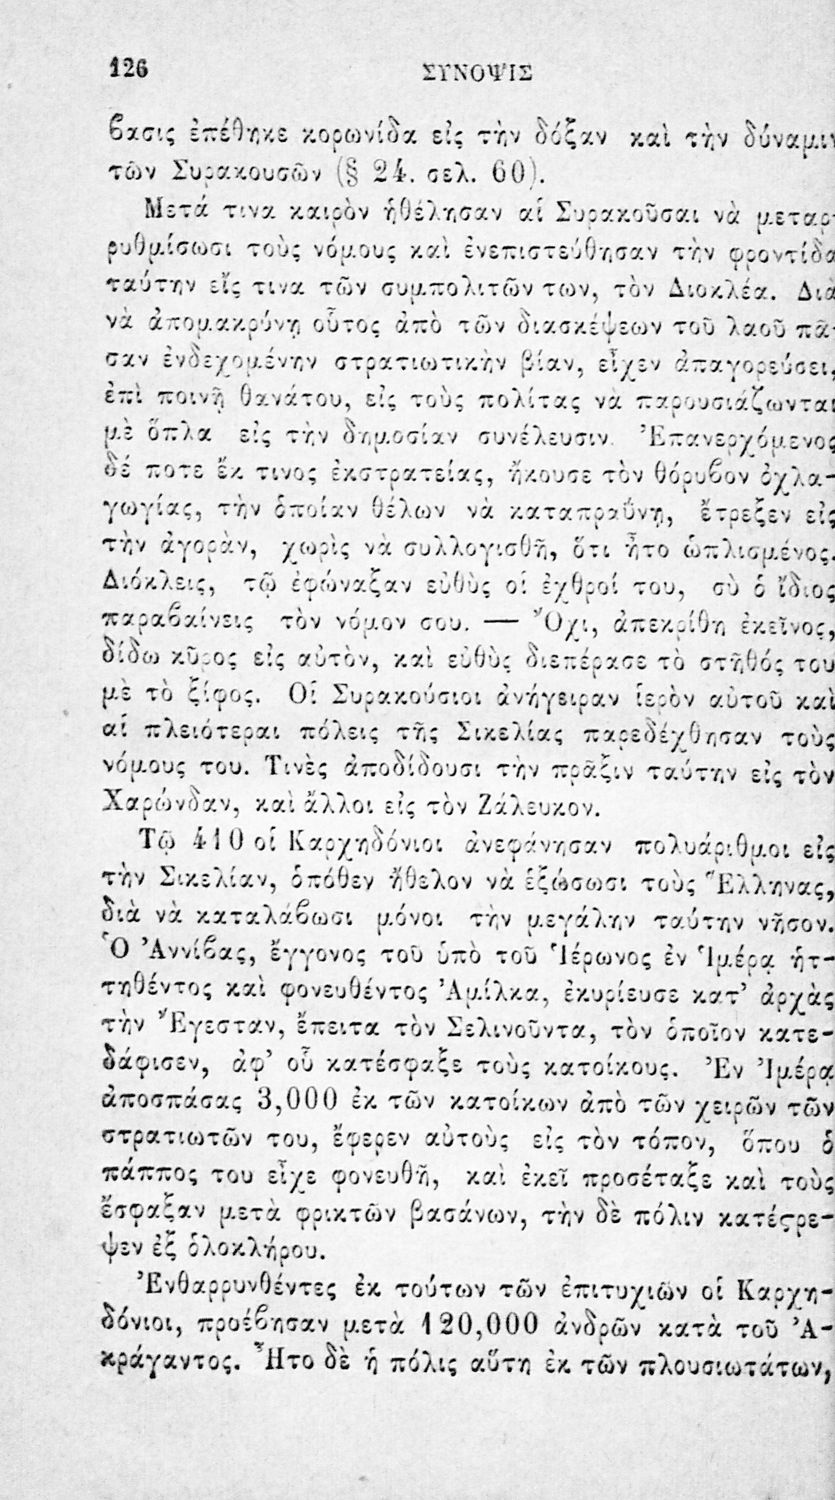 126 ΣΥΝΟΨΙΣ
βασις ἐπέθηκε κορωνίδα εἰς τὴν δόξαν καὶ τὴν δύναμιν
τῶν Συρακουσῶν (§ 24. σελ. 60).
Μετά τινα καιρὸν ἠθέλησαν αἱ Συρακοῦσαι νὰ μεταρ-
ρυθμίσωσι τοὺς νόμους καὶ ἐνεπιστεύθησαν τὴν φροντίδα
ταύτην εἴς τινα τῶν συμπολιτῶν των, τὸν Διοκλέα. Διὰ
νὰ ἀπομακρύνῃ οὗτος ἀπὸ τῶν διασκέψεων τοῦ λαοῦ πᾶ-
σαν ἐνδεχομένην στρατιωτικὴν βίαν, εἶχεν ἀπαγορεύσει,
ἐπὶ ποινῇ θανάτου, εἰς τοὺς πολίτας νὰ παρουσιάζωνται
μὲ ὅπλα εἰς τὴν δημοσίαν συνέλευσιν. Ἐπανερχόμενος
δέ ποτε ἔκ τινος ἐκστρατείας, ἤκουσε τὸν θόρυβον ὀχλα-
γωγίας, τὴν ὁποίαν θέλων νὰ καταπραΰνῃ, ἔτρεξεν εἰς
τὴν ἀγορὰν, χωρὶς νὰ συλλογισθῇ, ὅτι ἦτο ὡπλισμένος.
Διόκλεις, τῷ ἐφώναξαν εὐθὺς οἱ ἐχθροί του, σὺ ὁ ἴδιος
παραβαίνεις τὸν νόμον σου. — Ὄχι, ἀπεκρίθη ἐκεῖνος,
δίδω κῦρος εἰς αὐτὸν, καὶ εὐθὺς διεπέρασε τὸ στῆθός του
μὲ τὸ ξίφος. Οἱ Συρακούσιοι ἀνήγειραν ἱερὸν αὐτοῦ καὶ
αἱ πλειότεραι πόλεις τῆς Σικελίας παρεδέχθησαν τοὺς
νόμους του. Τινὲς ἀποδίδουσι τὴν πρᾶξιν ταύτην εἰς τὸν
Χαρώνδαν, καὶ ἄλλοι εἰς τὸν Ζάλευκον.
Τῷ 410 οἱ Καρχηδόνιοι ἀνεφάνησαν πολυάριθμοι εἰς
τὴν Σικελίαν, ὁπόθεν ἤθελον νὰ ἐξώσωσι τοὺς Ἕλληνας,
διὰ νὰ καταλάβωσι μόνοι τὴν μεγάλην ταύτην νῆσον.
Ὁ Ἀννίβας, ἔγγονος τοῦ ὑπὸ τοῦ Ἱέρωνος ἐν Ἱμέρᾳ ἡτ-
τηθέντος καὶ φονευθέντος Ἀμίλκα, ἐκυρίευσε κατ’ ἀρχὰς
τὴν Ἔγεσταν, ἔπειτα τὸν Σελινοῦντα, τὸν ὁποῖον κατε-
δάφισεν, ἀφ’ οὗ κατέσφαξε τοὺς κατοίκους. Ἐν Ἰμέρᾳ
ἀποσπάσας 3,000 ἐκ τῶν κατοίκων ἀπὸ τῶν χειρῶν τῶν
στρατιωτῶν του, ἔφερεν αὐτοὺς εἰς τὸν τόπον, ὅπου ὁ
πάππος του εἶχε φονευθῆ, καὶ ἐκεῖ προσέταξε καὶ τοὺς
ἔσφαξαν μετὰ φρικτῶν βασάνων, τὴν δὲ πόλιν κατέϛρε-
ψεν ἐξ ὁλοκλήρου.
Ἐνθαρρυνθέντες ἐκ τούτων τῶν ἐπιτυχιῶν οἱ Καρχη-
δόνιοι, προέβησαν μετὰ 120,000 ἀνδρῶν κατὰ τοῦ Ἀ-
κράγαντος. Ἦτο δὲ ἡ πόλις αὕτη ἐκ τῶν πλουσιωτάτων,